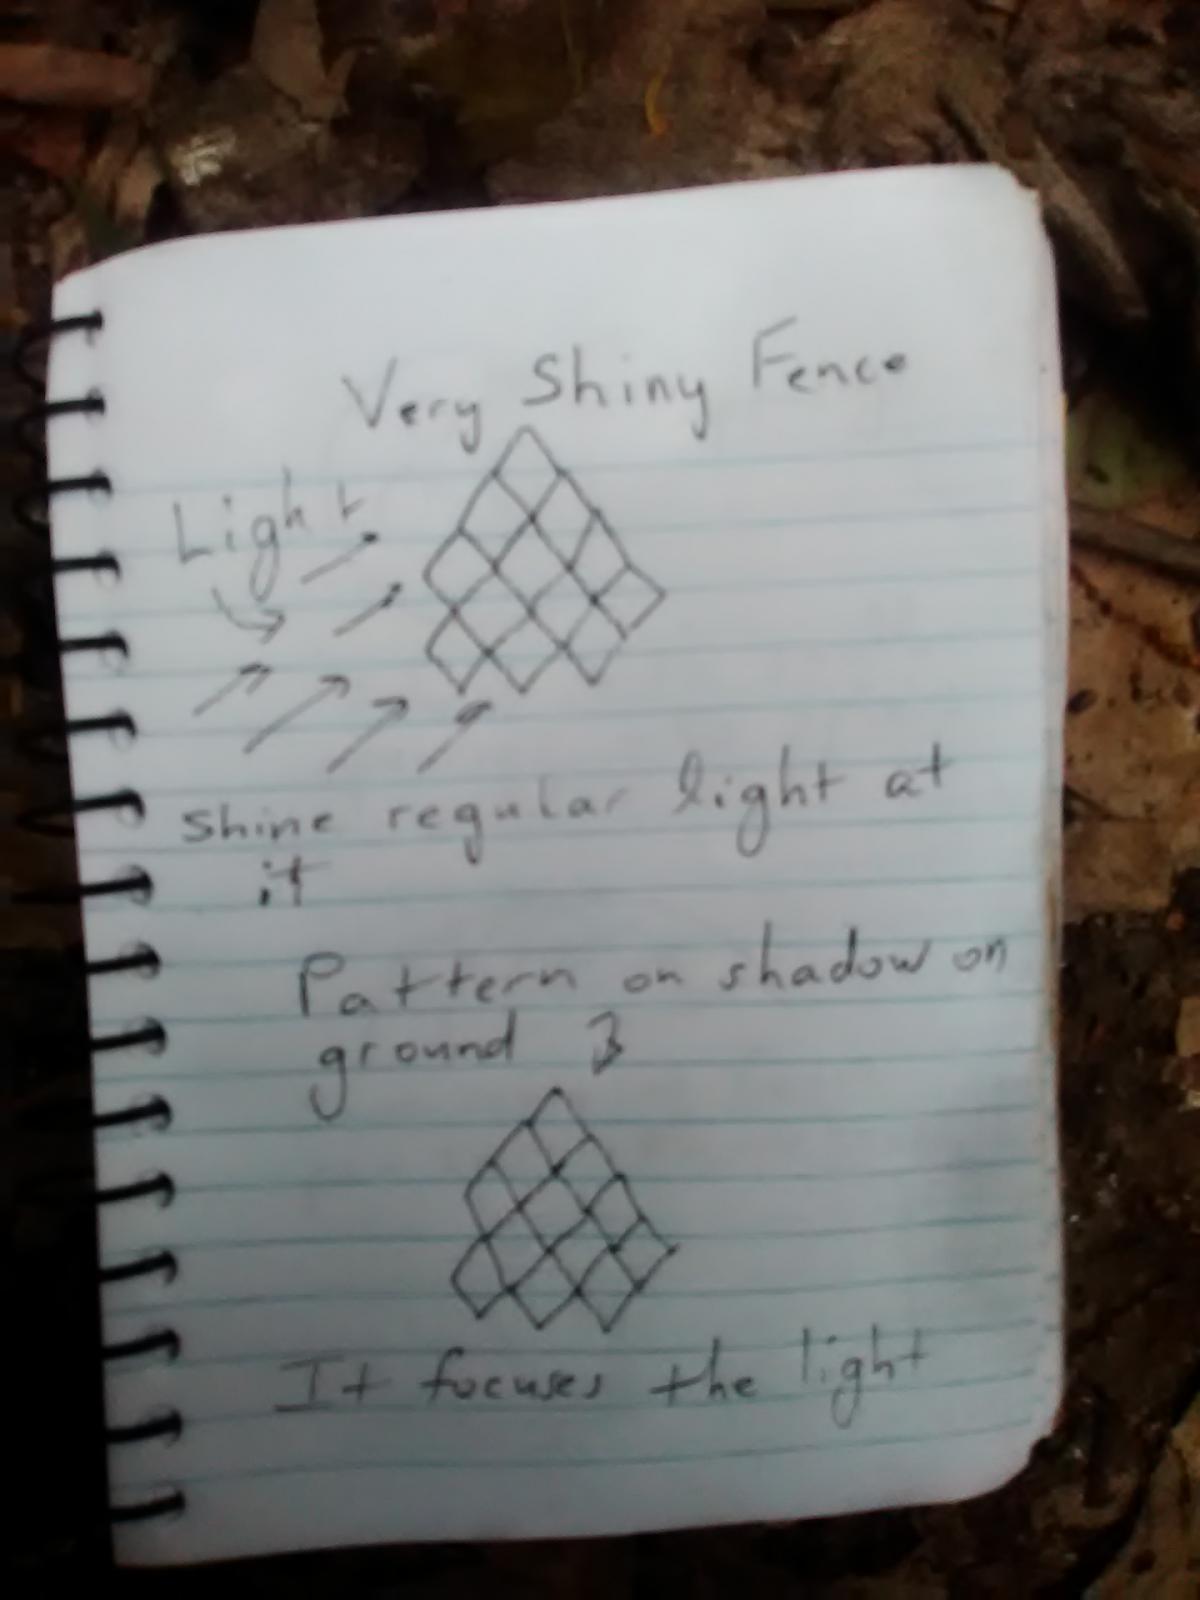 Very Shiny Fence
Light
shine regular light at
it
Pattern on shadow on
ground
It focuses the light